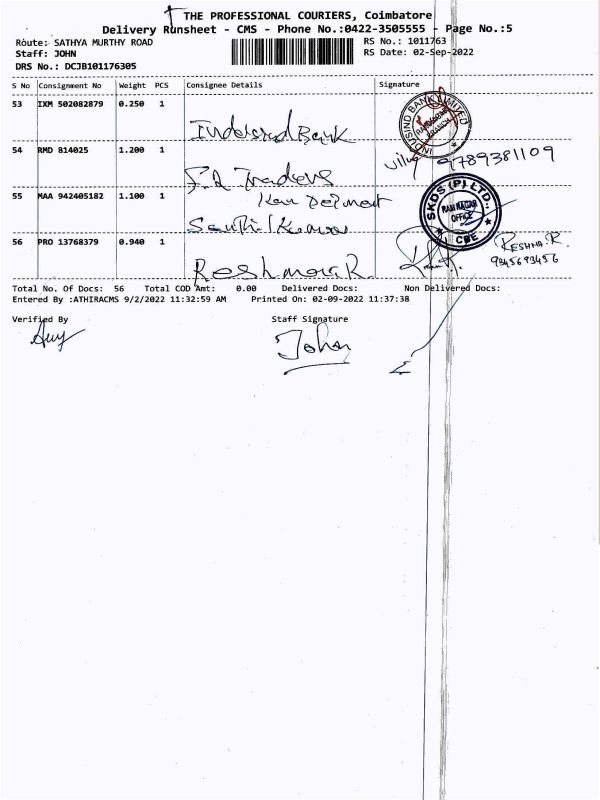 THE PROFESSIONAL COURIERS, Coimbatore
Delivery Runsheet - CMS - Phone No.:0422-3505555 - Page No.:5
Route: SATHYA MURTHY ROAD RS No.: 1011763
Staff: JOHN RS Date: 02-Sep-2022
DRS No.: DCJB101176305
S No Consignment No Weight PCS Consignee Details Signature
53 IXM 502082879 0.250 1
INDUSIND BANK LIMITED
Bank
54 RMD 814025 1.200 1
9789381109
Traders
55 MAA 942405182 1.100 1
SKDS (P) LTD.,
RAM NAGAR
OFFICE
CBE
Senthil Kumar
56 PRO 13768379 0.940 1
RESHMA.R.
9345693456
Reshma R.
Total No. Of Docs: 56 Total COD Amt: 0.00 Delivered Docs: Non Delivered Docs:
Entered By :ATHIRACMS 9/2/2022 11:32:59 AM Printed On: 02-09-2022 11:37:38
Verified By Staff Signature
John